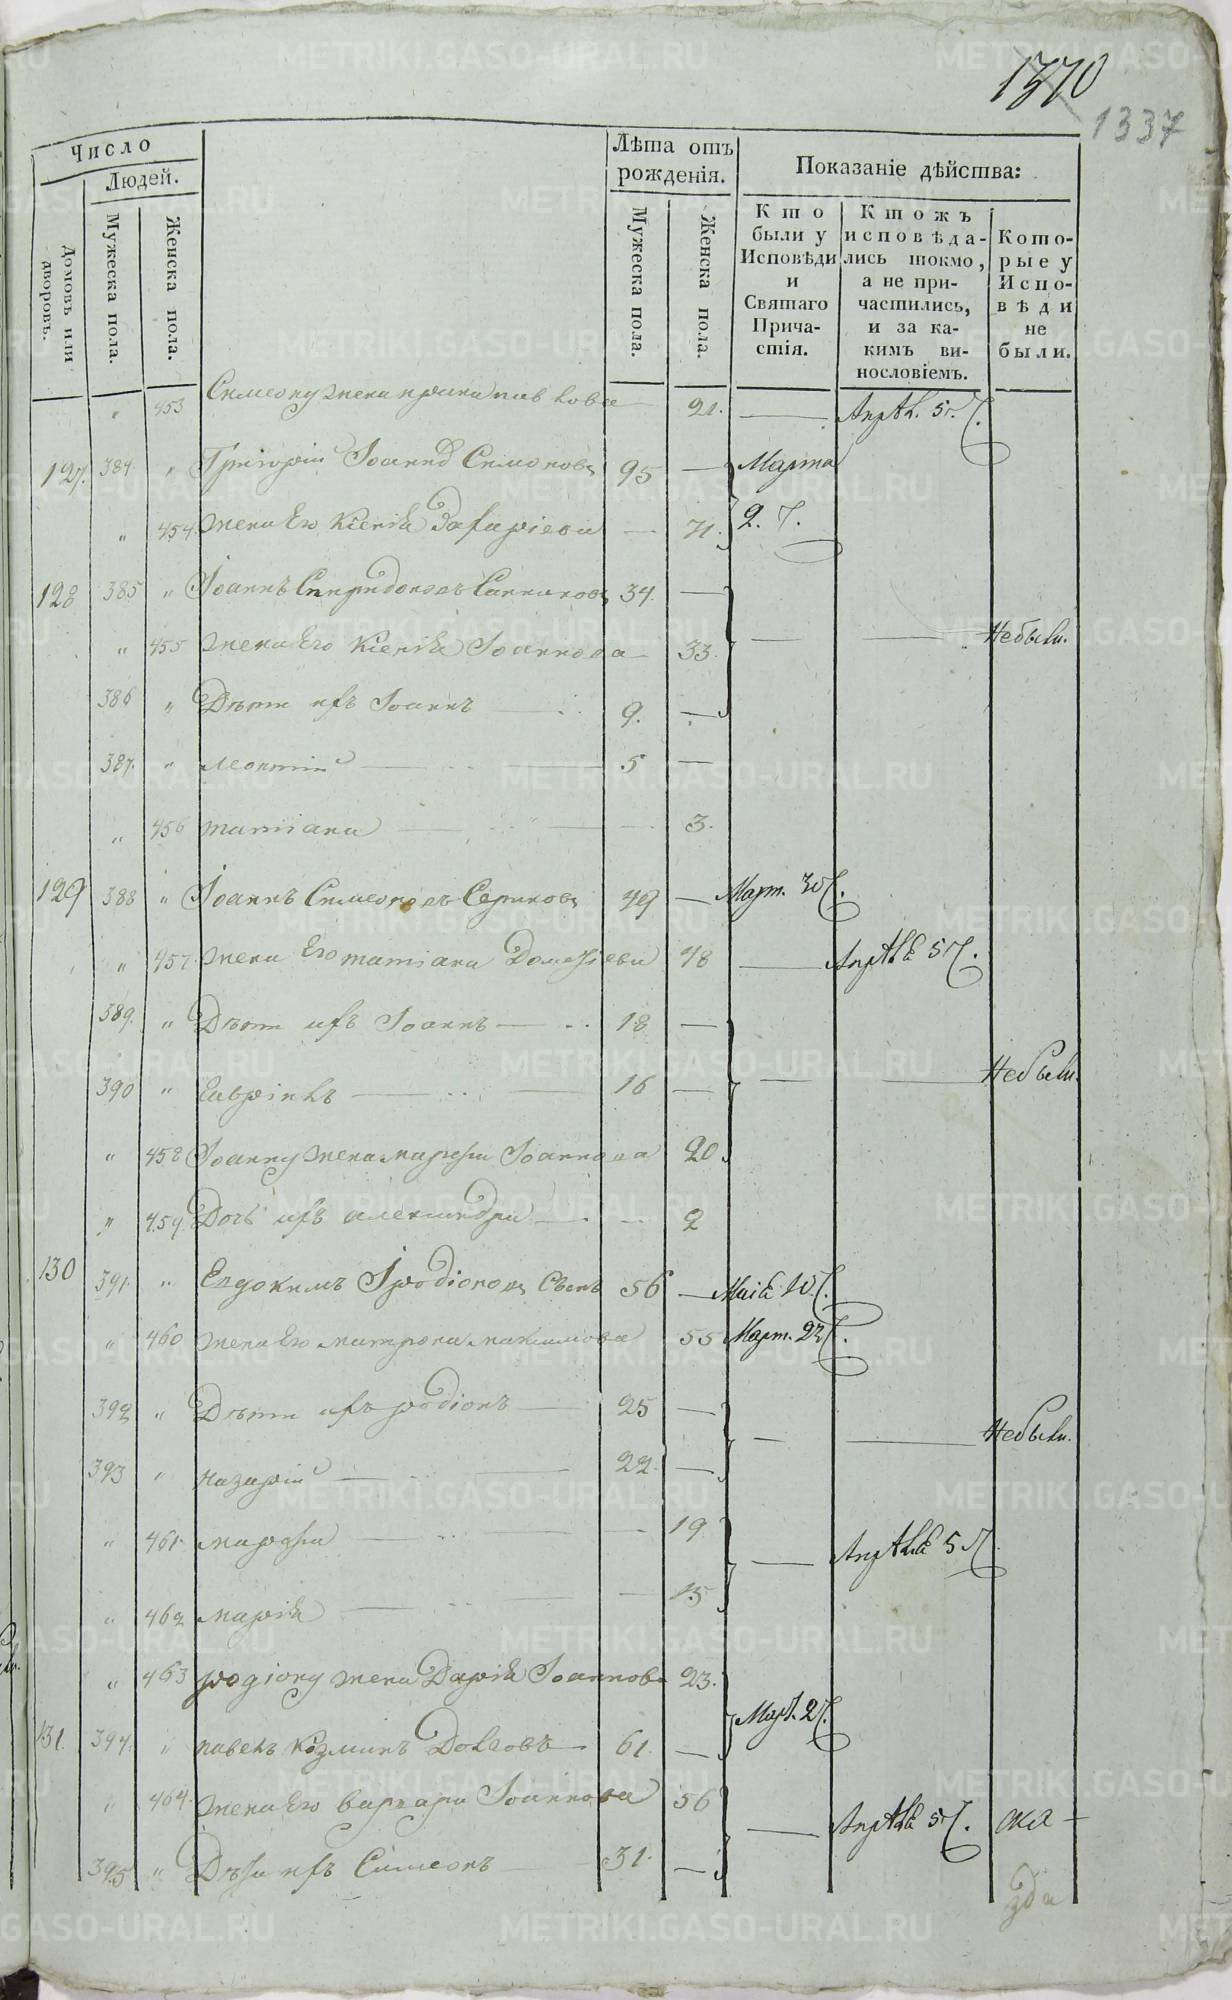 1370
1337
Число
Людей.
Домовъ или дворовъ.
Мужеска пола.
Женска пола.
Лѣта отъ рожденія.
Мужеска пола.
Женска пола.
Показаніе дѣйства:
Кто были у Исповѣди и Святаго Причастія.
Ктожъ исповѣдались токмо, а не причастились, и за какимъ винословіемъ.
Которые у Исповѣди не были.
" 453 Симеону жена 21. — Апрѣл. 5 Ч.
127. 384. " Григорій Іоанновъ Симоновъ 95 — Марта
" 454 жена Его Ксенія Захаріева — 71. 27.
128 385 " Іоаннъ Спиридоновъ Санниковъ 34. —
" 455 жена Его Ксенія Іоаннова — 33. — — Небыли.
386 " Дѣти ихъ Іоаннъ — 9. —
387. " Леонтій — 5 —
" 456 татіана — 3.
129 388 " Іоаннъ Симеоновъ 49 — Март. 30 Ч.
" 457. жена Его татіана Дометіева 48 — Апрѣля 5 Ч.
389. " Дѣти ихъ Іоаннъ — 18 —
390 " Гавріилъ — 16 — — — Небыли.
" 458 Іоанну жена марѳа Іоаннова 20.
" 459. Дочь ихъ александра — 2
130 391. " Евдокимъ Іродіоновъ 56 — Маія 10 Ч.
" 460 жена Его матрона максимова 55 Март. 22 Ч.
392 " Дѣти ихъ родіонъ — 25 — — — Небыли.
393 " назарій — 22. —
" 461. марѳа — 19. — Апрѣля 5 Ч.
" 462 марія — 15
" 463 родіону жена Дарія Іоаннова 23.
131. 394. " павелъ Козминъ Долговъ — 61. — Март. 27.
" 464. жена Его варвара Іоаннова 56 — Апрѣля 5 Ч.
395 " Дѣти ихъ Симеонъ 31. —
METRIKI.GASO-URAL.RU